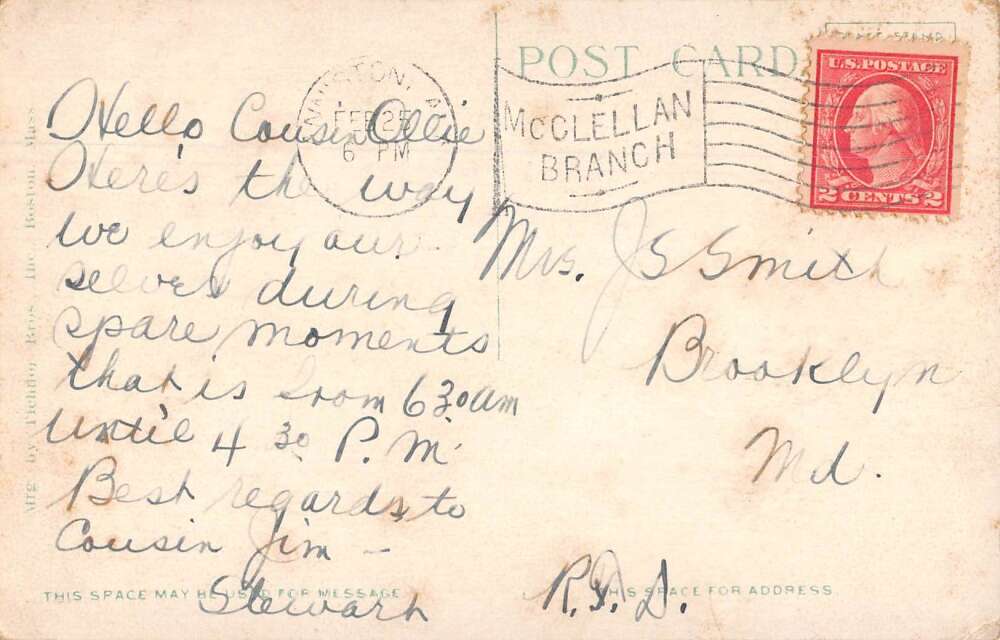 POST CARD
ANNISTON, A
FEB 25
6 PM
McCLELLAN
BRANCH
U.S. POSTAGE
2 CENTS 2
Hello Cousin Ollie
Here's the way
we enjoy our
selves during
spare moments
that is from 630 am
until 4 30 P.M.
Best regards to
Cousin Jim –
Stewart
Mrs. J S Smith
Brooklyn
Md.
R.F.D.
THIS SPACE MAY BE USED FOR MESSAGE
THIS SPACE FOR ADDRESS.
Mfg. by Tichnor Bros. Inc. Boston Mass.